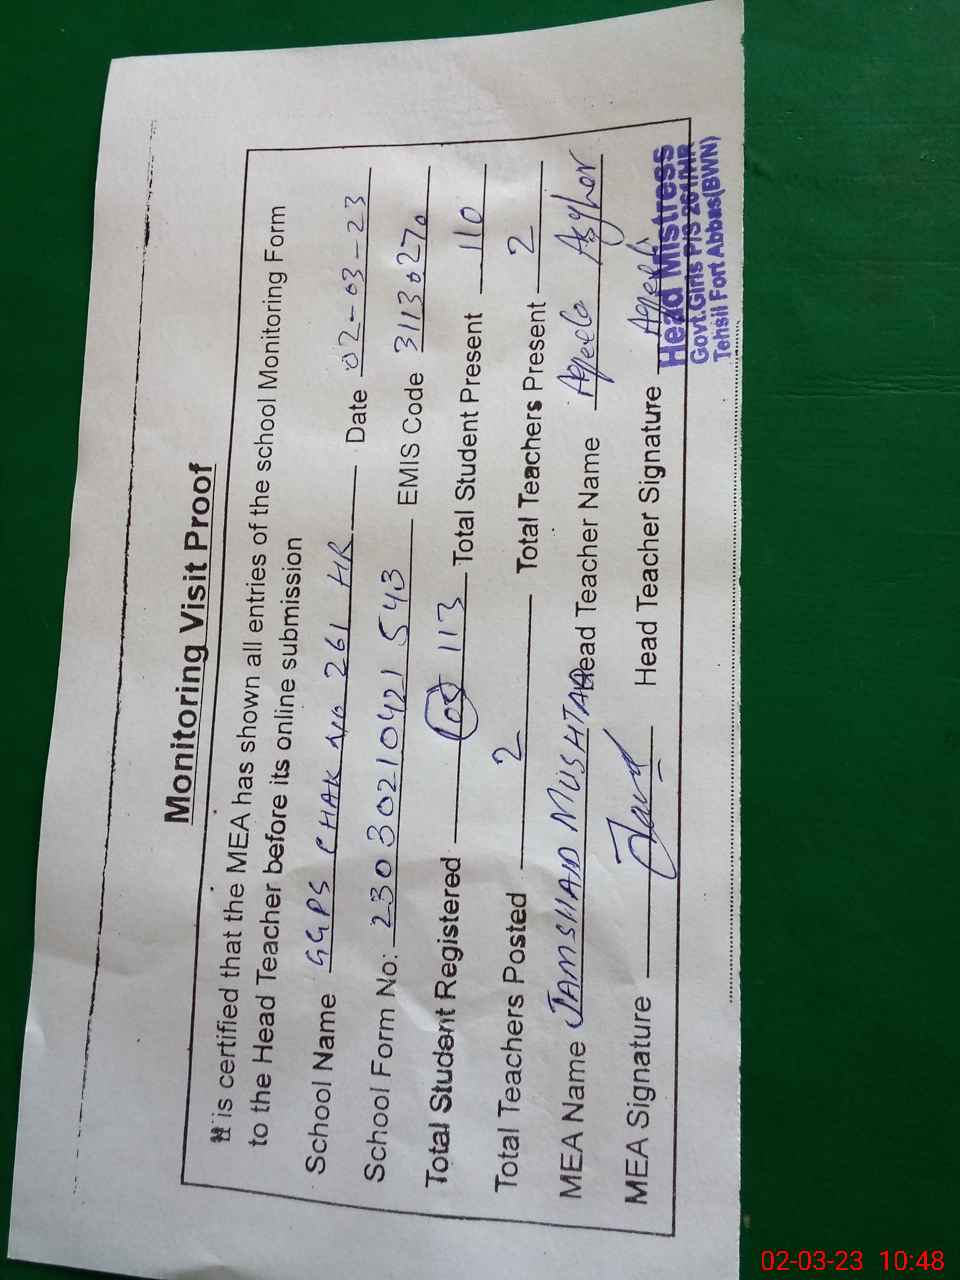 Monitoring Visit Proof
It is certified that the MEA has shown all entries of the school Monitoring Form
to the Head Teacher before its online submission
School Name GGPS CHAK NO 261 HR Date 02-03-23
School Form No: 23030210421543 EMIS Code 31130270
Total Student Registered 113 Total Student Present 110
Total Teachers Posted 2 Total Teachers Present 2
MEA Name JAMSHAD MUSHTAQ Head Teacher Name Aqeela Asgher
MEA Signature Head Teacher Signature Aqeela
Head Mistress
Govt.Girls P/S 261/HR
Tehsil Fort Abbas(BWN)
02-03-23 10:48